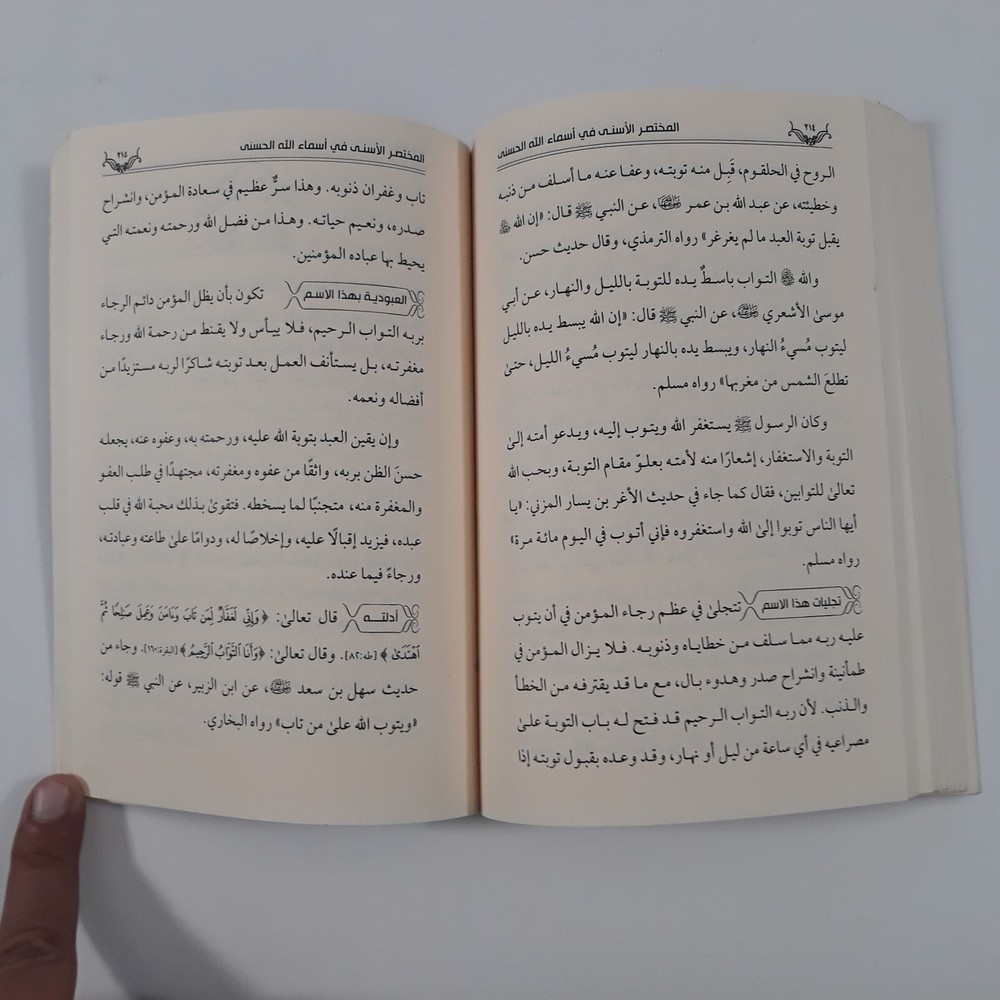 ٢١٤
المختصر الأسنى في أسماء الله الحسنى
الروح في الحلقوم، قَبِل منه توبته، وعفا عنه ما أسلف من ذنبه
وخطيئته، عن عبد الله بن عمر رضي الله عنهما، عن النبي ﷺ قال: «إن الله ﷻ
يقبل توبة العبد ما لم يغرغر» رواه الترمذي، وقال حديث حسن.
والله ﷻ التواب باسطٌ يده للتوبة بالليل والنهار، عن أبي
موسىٰ الأشعري رضي الله عنه، عن النبي ﷺ قال: «إن الله يبسط يده بالليل
ليتوب مُسيءُ النهار، ويبسط يده بالنهار ليتوب مُسيءُ الليل، حتىٰ
تطلعَ الشمس من مغربها» رواه مسلم.
وكان الرسول ﷺ يستغفر الله ويتوب إليه، ويدعو أمته إلىٰ
التوبة والاستغفار، إشعارًا منه لأمته بعلوّ مقام التوبة، وبحب الله
تعالىٰ للتوابين، فقال كما جاء في حديث الأغر بن يسار المزني: «يا
أيها الناس توبوا إلىٰ الله واستغفروه فإني أتوب في اليوم مائة مرة»
رواه مسلم.
تجليات هذا الاسم تتجلىٰ في عظم رجاء المؤمن في أن يتوب
عليه ربه مما سلف من خطاياه وذنوبه. فلا يزال المؤمن في
طمأنينة وانشراح صدر وهدوء بال، مع ما قد يقترفه من الخطأ
والذنب. لأن ربه التواب الرحيم قد فتح له باب التوبة علىٰ
مصراعيه في أي ساعة من ليل أو نهار، وقد وعده بقبول توبته إذا
المختصر الأسنى في أسماء الله الحسنى
٢١٥
تاب وغفران ذنوبه. وهذا سرٌّ عظيم في سعادة المؤمن، وانشراح
صدره، ونعيم حياته. وهذا من فضل الله ورحمته ونعمته التي
يحيط بها عباده المؤمنين.
العبودية بهذا الاسم تكون بأن يظل المؤمن دائم الرجاء
بربه التواب الرحيم، فلا ييأس ولا يقنط من رحمة الله ورجاء
مغفرته، بل يستأنف العمل بعد توبته شاكرًا لربه مستزيدًا من
أفضاله ونعمه.
وإن يقين العبد بتوبة الله عليه، ورحمته به، وعفوه عنه، يجعله
حسنَ الظن بربه، واثقًا من عفوه ومغفرته، مجتهدًا في طلب العفو
والمغفرة منه، متجنبًا لما يسخطه. فتقوىٰ بذلك محبة الله في قلب
عبده، فيزيد إقبالًا عليه، وإخلاصًا له، ودوامًا علىٰ طاعته وعبادته،
ورجاءً فيما عنده.
أدلتـــه قال تعالىٰ: ﴿وَإِنِّي لَغَفَّارٌ لِّمَن تَابَ وَءَامَنَ وَعَمِلَ صَٰلِحًا ثُمَّ
ٱهْتَدَىٰ﴾ [طه:٨٢]. وقال تعالىٰ: ﴿وَأَنَا ٱلتَّوَّابُ ٱلرَّحِيمُ﴾ [البقرة:١٦٠]. وجاء من
حديث سهل بن سعد رضي الله عنه، عن ابن الزبير، عن النبي ﷺ قوله:
«ويتوب الله علىٰ من تاب» رواه البخاري.